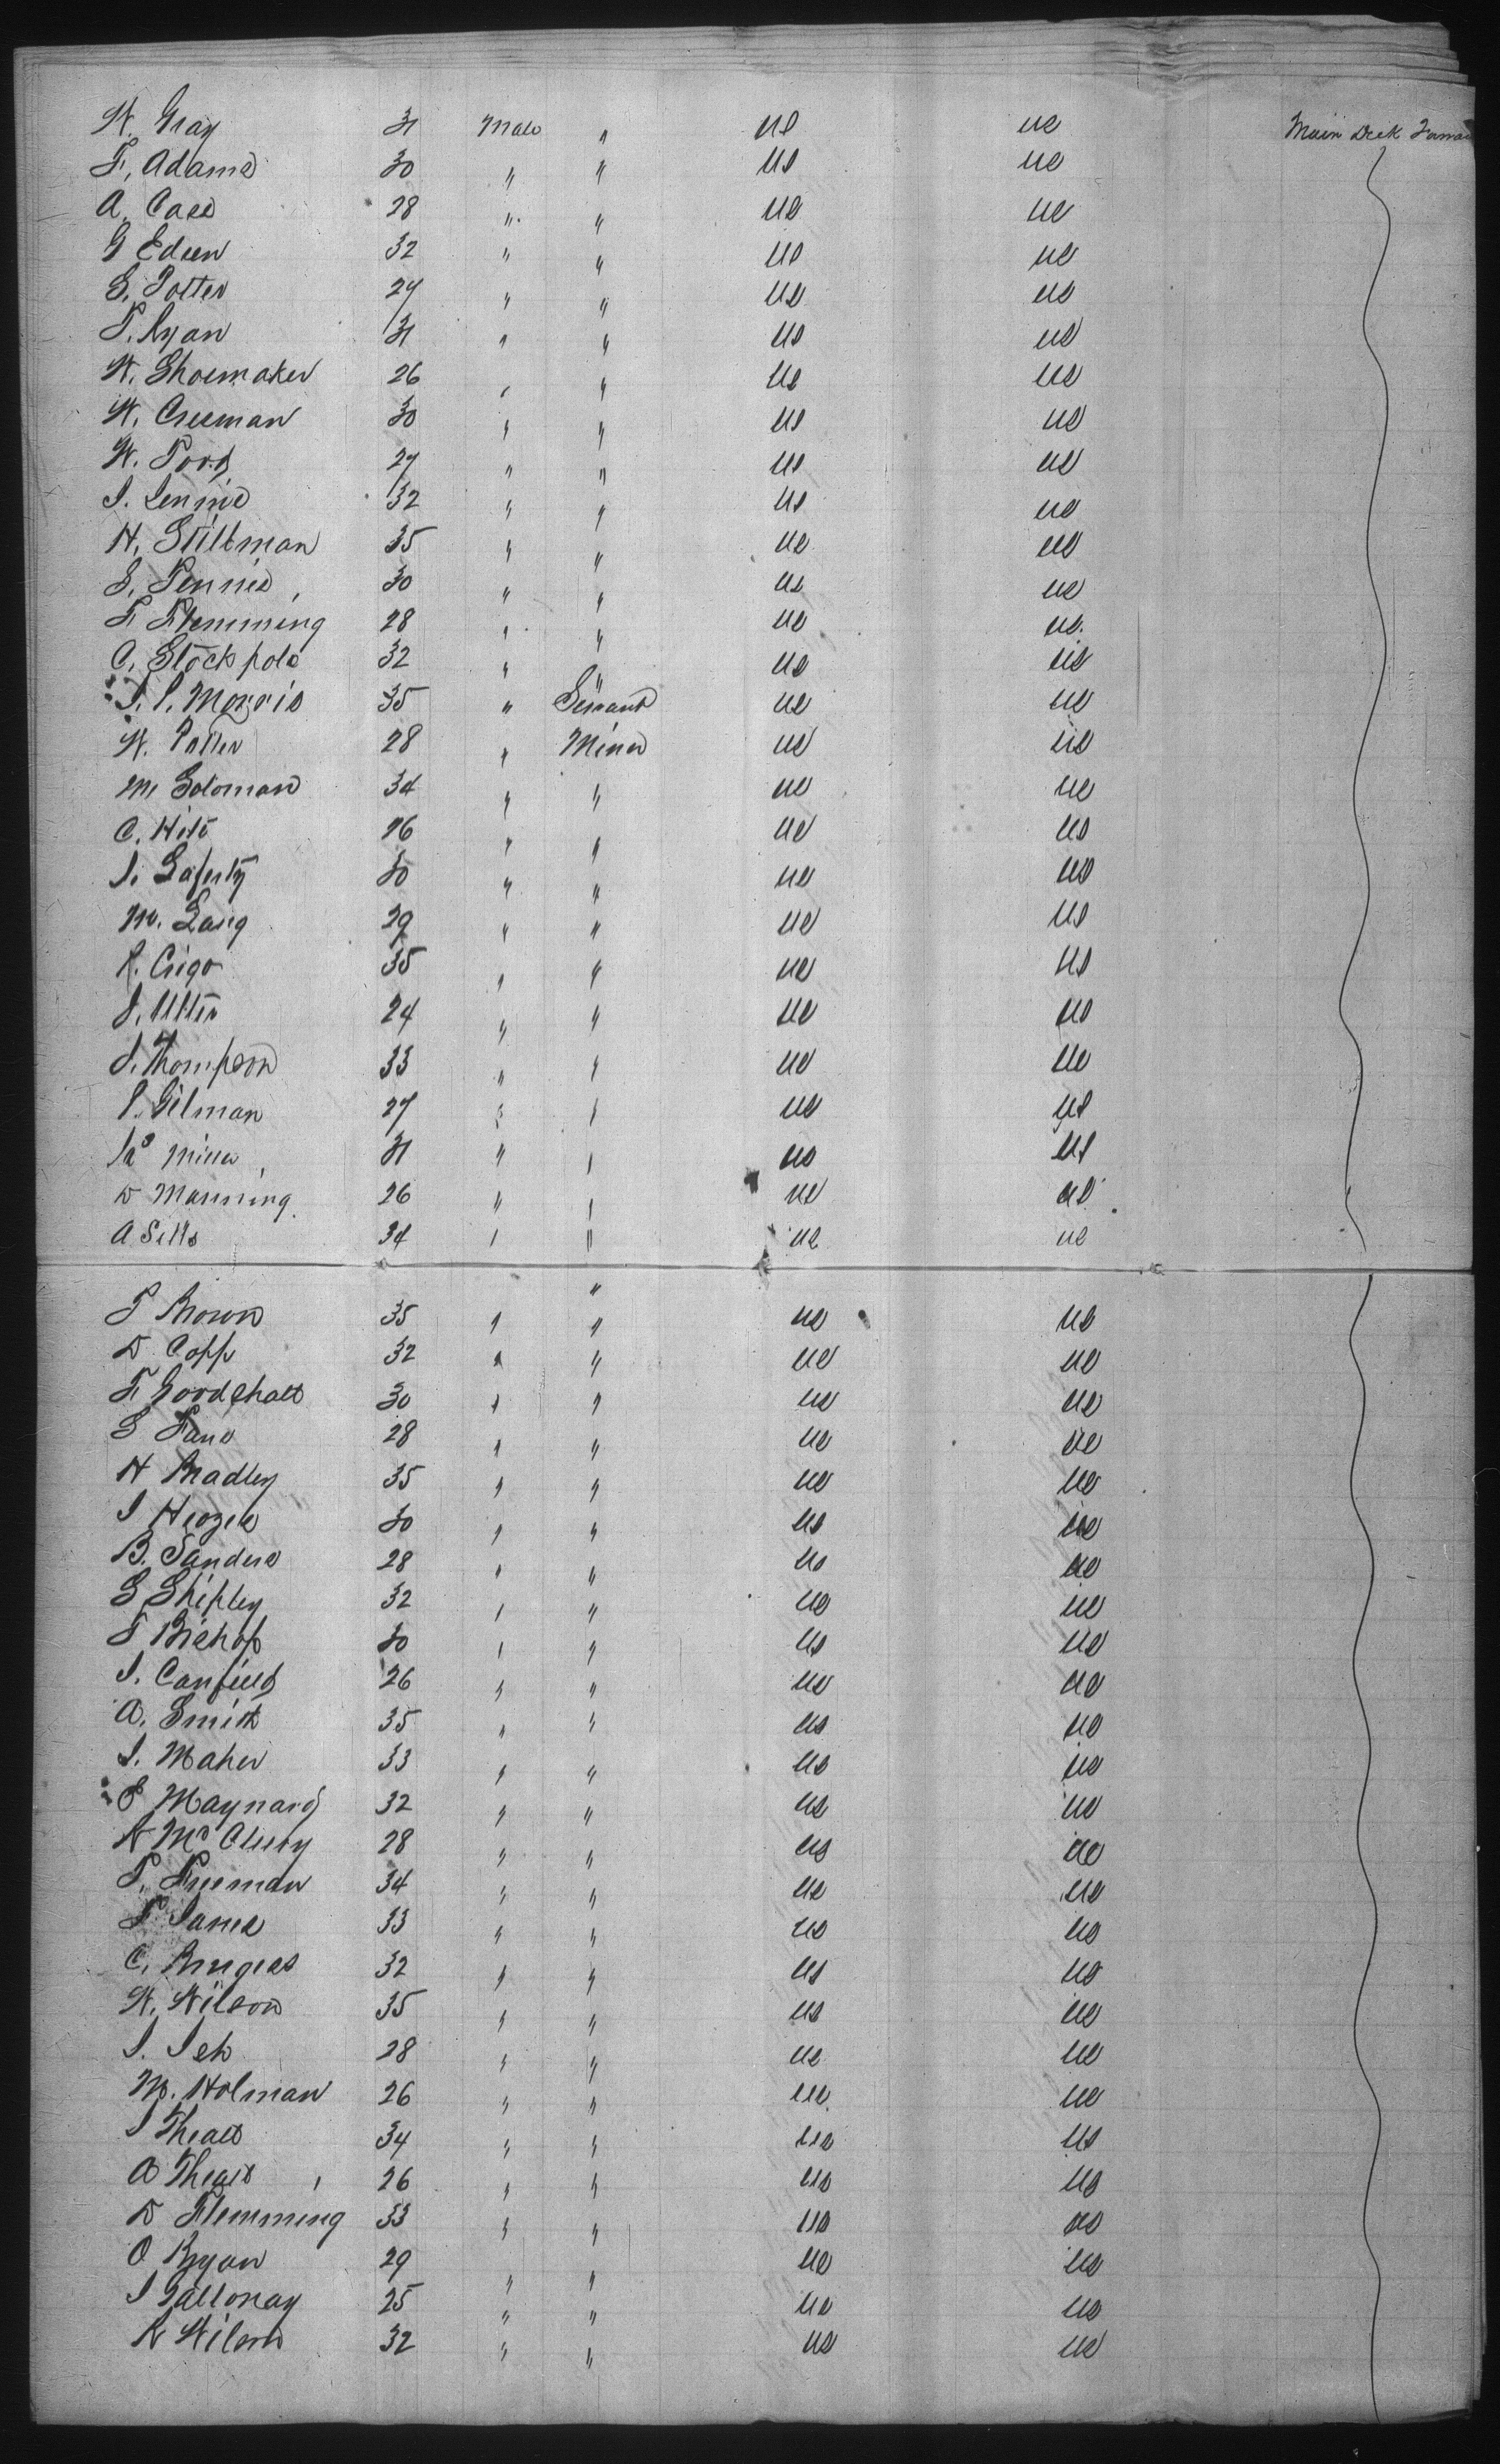 W. Gray 31 Male " US US Main Deck
F. Adams 30 " " US US
A. Case 28 " " US US
G Edeen 32 " " US US
S. Potter 27 " " US US
T. Ryan 31 " " US US
W. Shoemaker 26 " " US US
W. Creeman 30 " " US US
W. Ford 27 " " US US
J. Lennie 32 " " US US
H. Stiltman 35 " " US US
S. Pennie 30 " " US US
F. Flemming 28 " " US US
C. Stockpole 32 " " US US
J. P. Morris 35 " Servant US US
W. Potter 28 " Miner US US
M Soloman 34 " " US US
C. Hite 26 " " US US
J. Laferty 30 " " US US
M. Lang 29 " " US US
R. Crigo 35 " " US US
J. Utter 24 " " US US
J. Thompson 33 " " US US
P. Gilman 27 " " US US
Miller 31 " " US US
D Manning 26 " " US US
A Sills 34 " " US US
"
T Brown 35 " " US US
D Copp 32 " " US US
F. Goodshall 30 " " US US
S Fane 28 " " US US
H Bradley 35 " " US US
J 30 " " US US
B. Sanders 28 " " US US
S Shipley 32 " " US US
T Bishop 30 " " US US
J. Canfield 26 " " US US
A. Smith 35 " " US US
J. Maher 33 " " US US
E Maynard 32 " " US US
R McClury 28 " " US US
T. Freeman 34 " " US US
F James 33 " " US US
C. Burgess 32 " " US US
W. Wilson 35 " " US US
J. 28 " " US US
M. Holman 26 " " US US
J Theall 34 " " US US
A Theall 26 " " US US
D Flemming 33 " " US US
O Ryan 29 " " US US
J Galloway 25 " " US US
R Wilson 32 " " US US